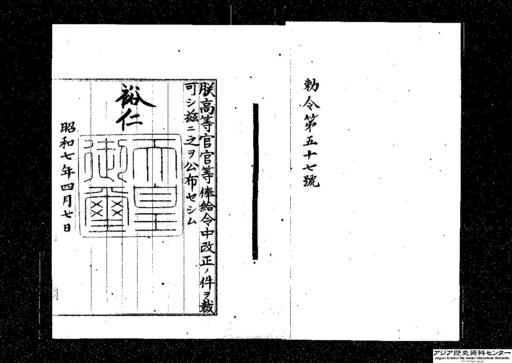 勅令第五十七號
朕高等官官等俸給令中改正ノ件ヲ裁
可シ玆ニ之ヲ公布セシム
裕仁
天皇
御璽
昭和七年四月七日
アジア歴史資料センター
Japan Center for Asian Historical Records